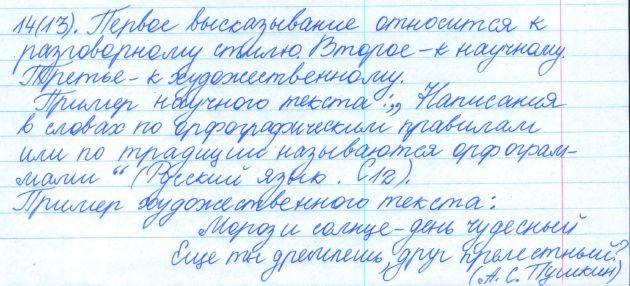 14(13). Первое высказывание относится к
разговорному стилю. Второе – к научному.
Третье – к художественному.
Пример научного текста: „Написания
в словах по орфографическим правилам
или по традиции называются орфограм-
мами“ (Русский язык. С12).
Пример художественного текста:
Мороз и солнце – день чудесный
Еще ты дремлешь, друг прелестный?
(А. С. Пушкин)